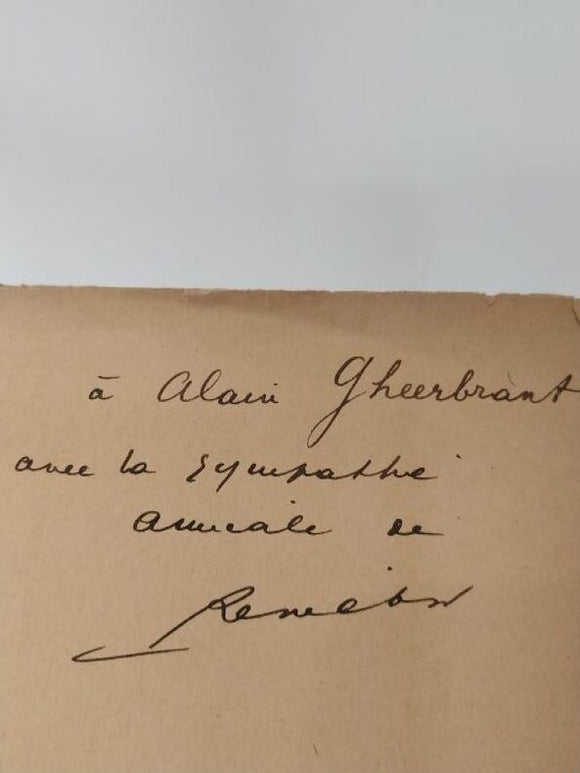 à Alain Gheerbrant
avec la sympathie
amicale de